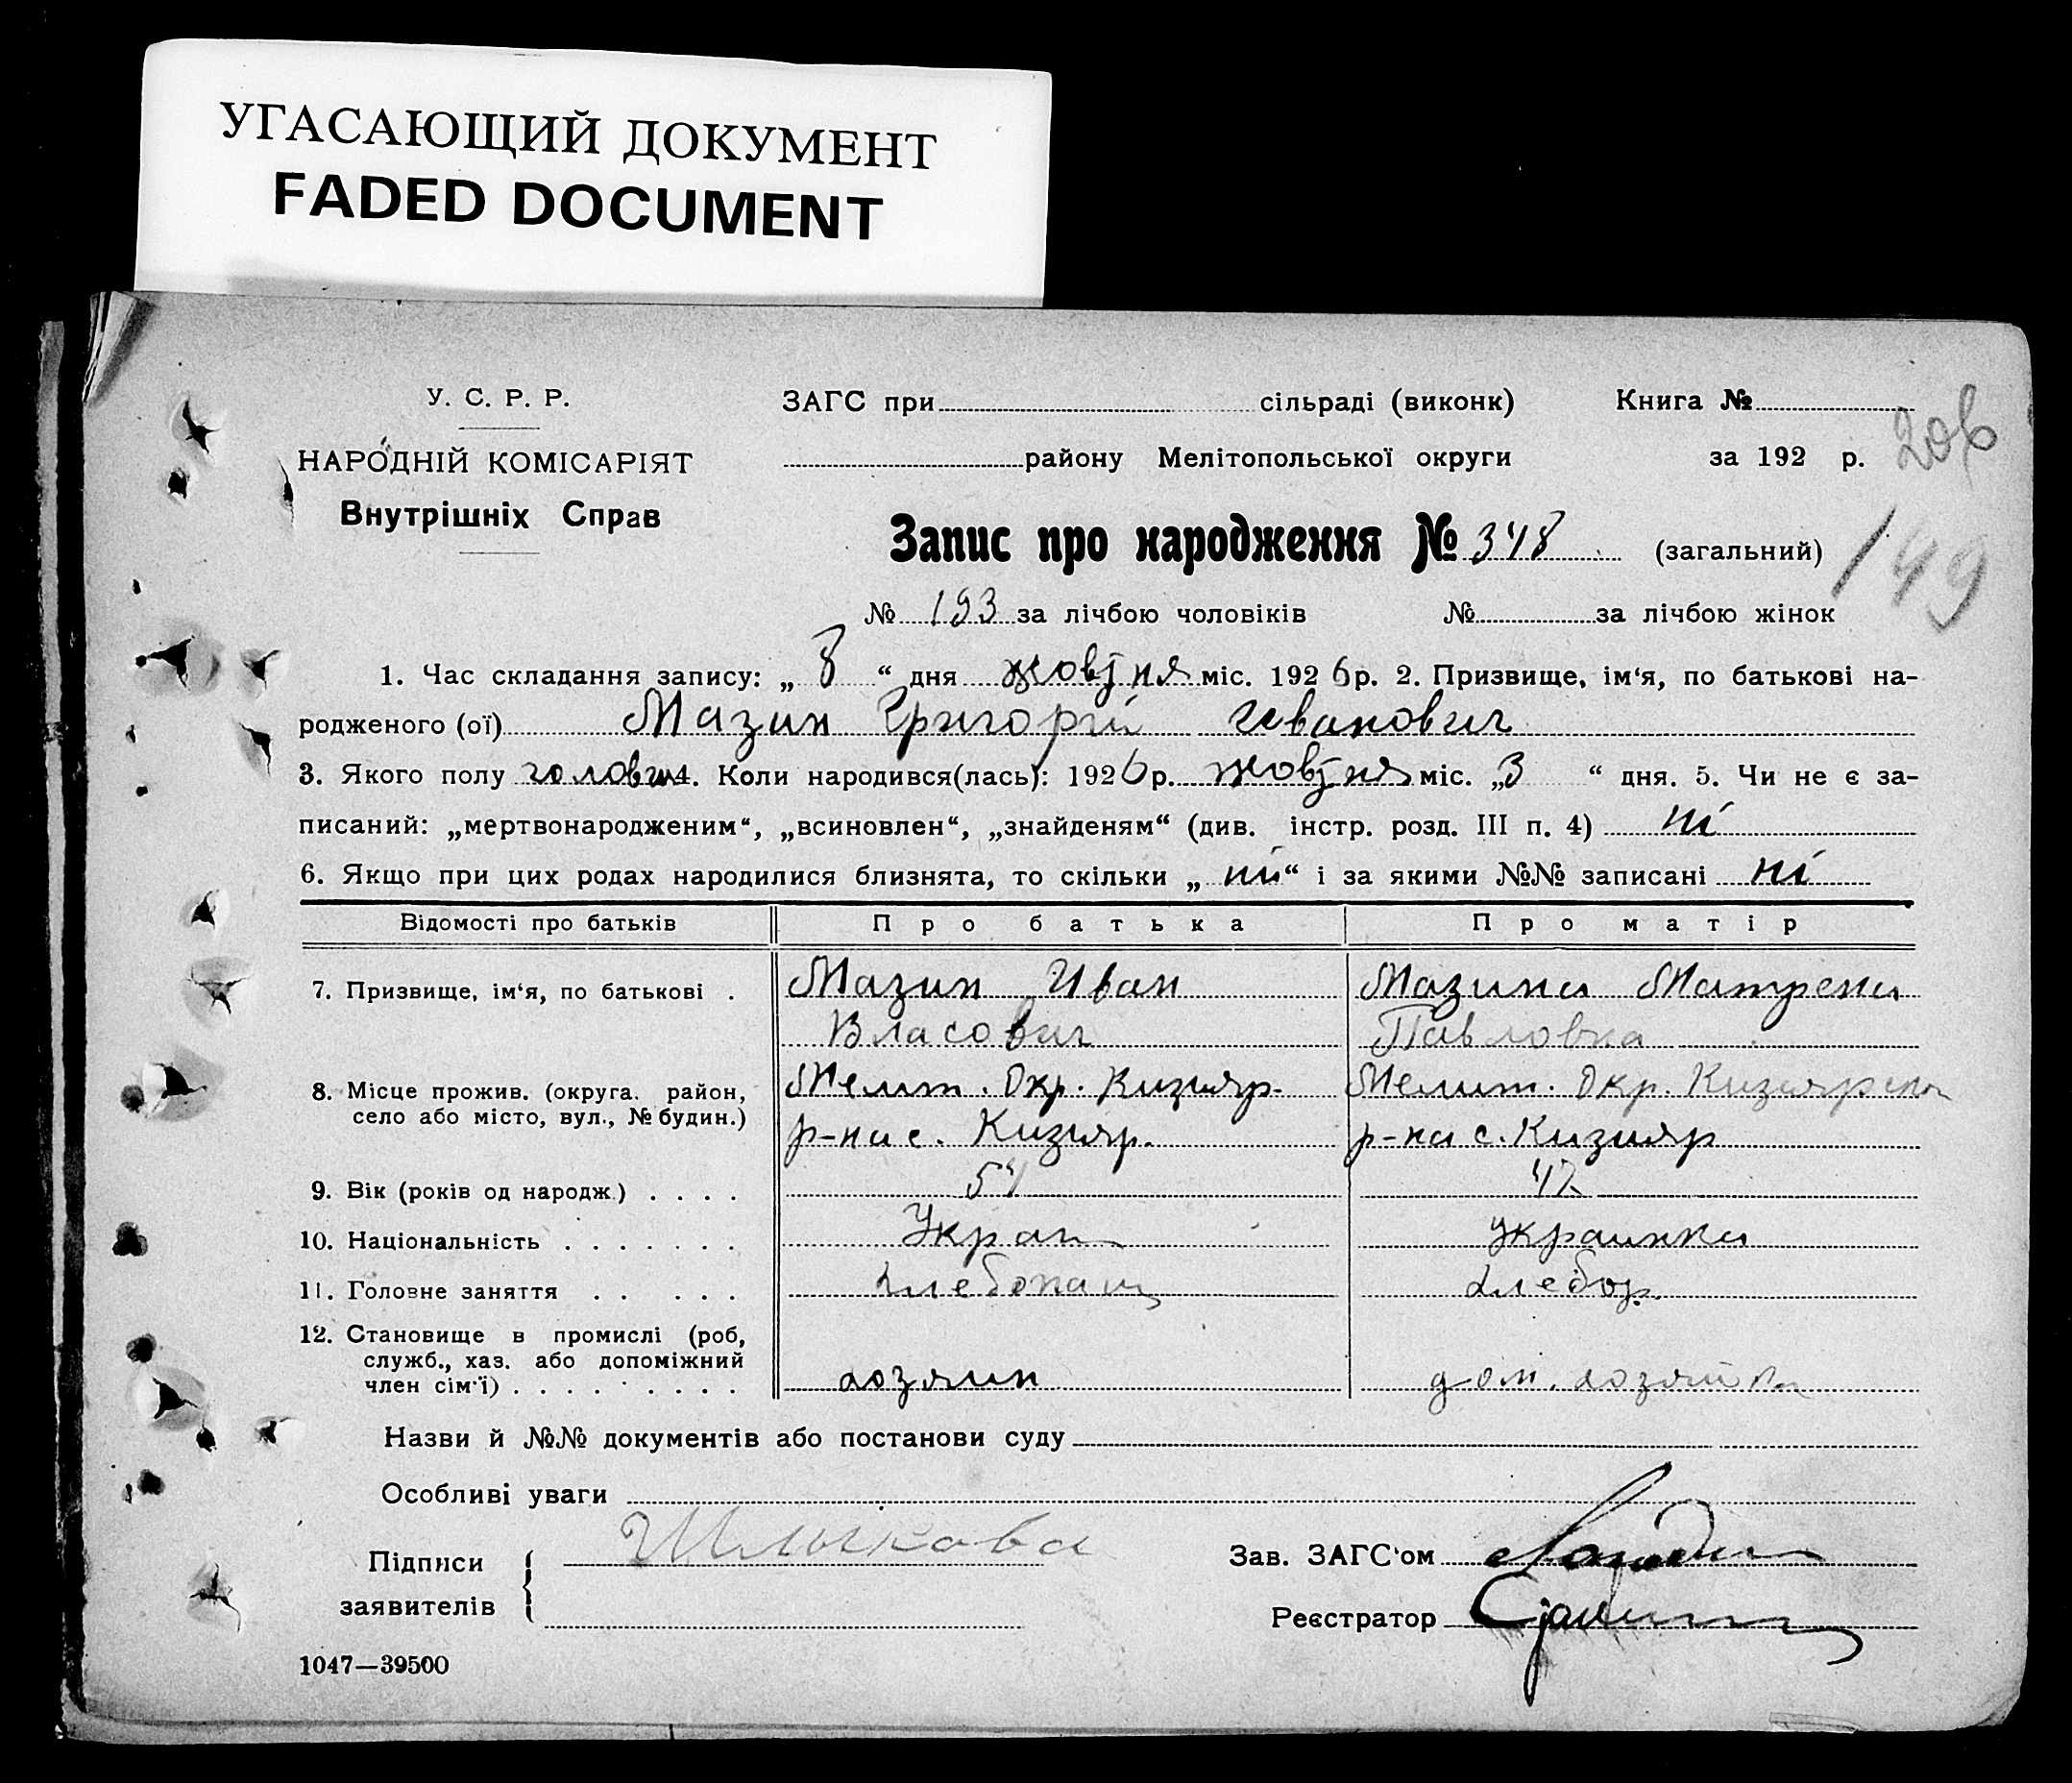 УГАСАЮЩИЙ ДОКУМЕНТ
FADED DOCUMENT
У. С. Р. Р.
НАРОДНІЙ КОМІСАРІЯТ
Внутрішніх Справ
ЗАГС при сільраді (виконк) Книга №
району Мелітопольської округи за 192 р.
206
149
Запис про народження № 348 (загальний)
№ 193 за лічбою чоловіків № за лічбою жінок
1. Час складання запису: „ 8 “ дня жовтня міс. 1926 р. 2. Призвище, ім‘я, по батькові на-
родженого (ої) Мазин Григорій Иванович
3. Якого полу чоловіч 4. Коли народився(лась): 1926 р. жовтня міс. „3 “ дня. 5. Чи не є за-
писаний: „мертвонародженим“, „всиновлен“, „знайденям“ (див. інстр. розд. III п. 4) ні
6. Якщо при цих родах народилися близнята, то скільки „ ні “ і за якими №№ записані ні
Відомості про батьків Про батька Про матір
7. Призвище, ім‘я, по батькові . Мазин Иван Мазина Матрена
Власович Павловна
8. Місце прожив. (округа. район, Мелит. Окр. Кизияр. Мелит. Окр. Кизиярска
село або місто, вул., № будин.) р-на с. Кизияр. р-на с. Кизияр
9. Вік (років од народж.) . . . . 54 42
10. Національність . . . . . . . Украин украинка
11. Головне заняття . . . . . Хлебопащ хлебор.
12. Становище в промислі (роб,
служб., хаз. або допоміжний
член сім‘ї) . . . . . . . . . хозяин дом. хозяйка
Назви й №№ документів або постанови суду
Особливі уваги
Підписи
заявителів
Шлыкова
Зав. ЗАГС‘ом
Реєстратор
1047—39500